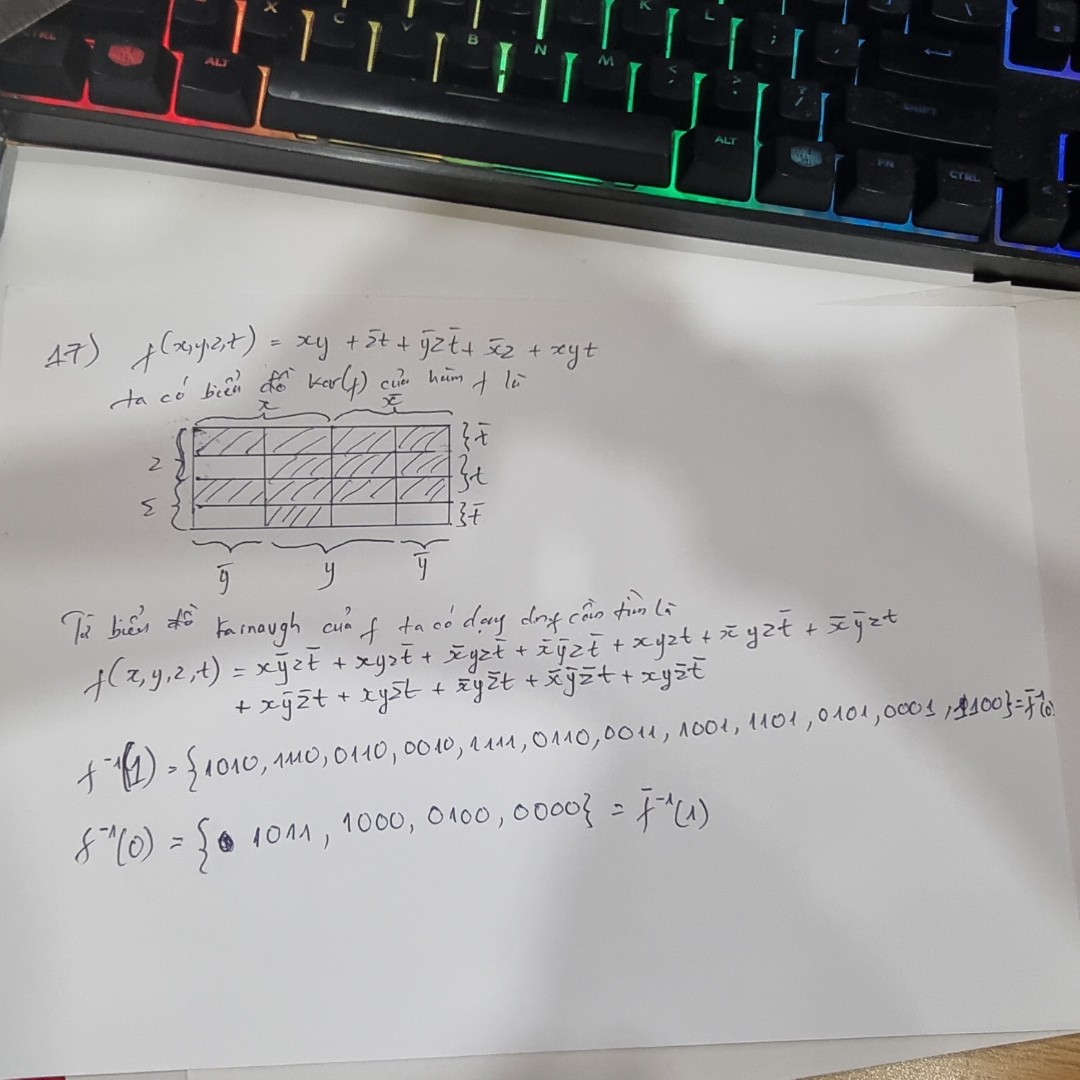 X C V B N M K L ; ,
CTRL ALT < > ? / SHIFT
ALT FN CTRL <
17) f(x,y,z,t) = xy + z̄t + ȳzt̄ + x̄z + xyt
ta có biểu đồ kar(f) của hàm f là
x x̄
z t̄
t
z̄ t̄
ȳ y ȳ
Từ biểu đồ karnaugh của f ta có dạng dnf cần tìm là
f(x,y,z,t) = xȳzt̄ + xyzt̄ + x̄yzt̄ + x̄ȳzt̄ + xyzt + x̄yzt̄ + x̄ȳzt
+ xȳz̄t + xyz̄t + x̄yz̄t + x̄ȳz̄t + xyz̄t̄
f⁻¹(1) = {1010, 1110, 0110, 0010, 1111, 0110, 0011, 1001, 1101, 0101, 0001, 1100} = f̄⁻¹(0)
f⁻¹(0) = {1011, 1000, 0100, 0000} = f̄⁻¹(1)